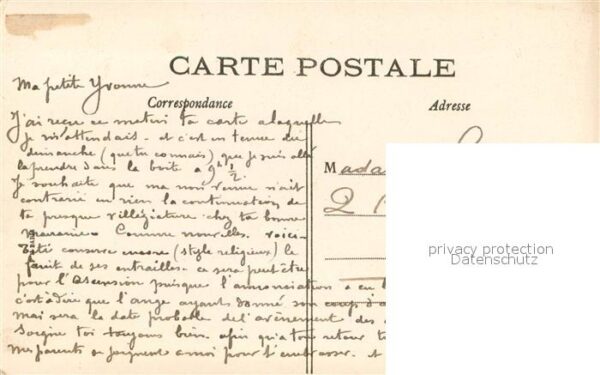 CARTE POSTALE
Ma petite Yvonne
Correspondance
Adresse
J'ai reçu ce matin ta carte a laquelle
je m'attendais - et c'est en tenue du
dimanche (que tu connais) que je suis allé
la prendre dans la boîte a 9h 1/2.
Je souhaite que ma non venue n'ait
contrarié en rien la continuation de
ta presque villégiature chez ta bonne
marraine. Comme nouvelles. voici
conserve encore (style religieux) le
fruit de ses entrailles. ce sera peut être
pour l'Ascension puisque l'annonciation a eu
c'est a dire que l'ange ayant donné son coup d'
mai sera la date probable de l'avènement des
Soigne toi toujours bien. afin qu'a ton retour
mes parents se joignent a moi pour t'embrasser. et
Mada
2
privacy protection
Datenschutz